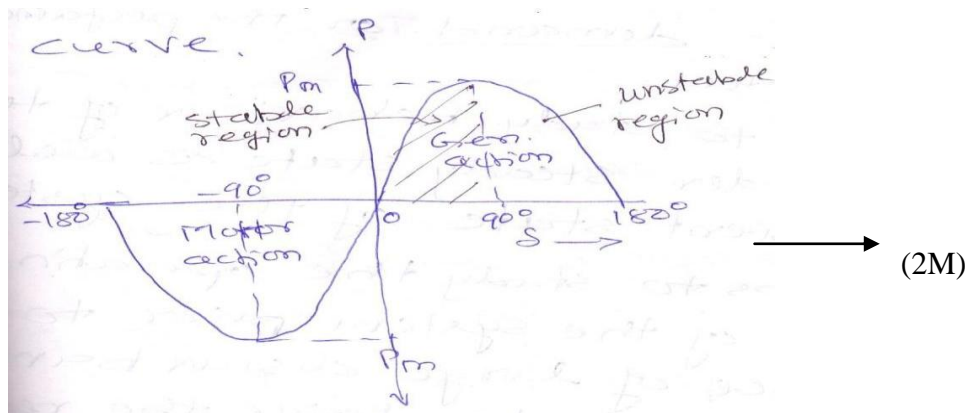 curve.
P
Pm
stable
region
unstable
region
Gen.
action
-90°
-180°
0
90°
180°
Motor
action
δ
Pm
(2M)